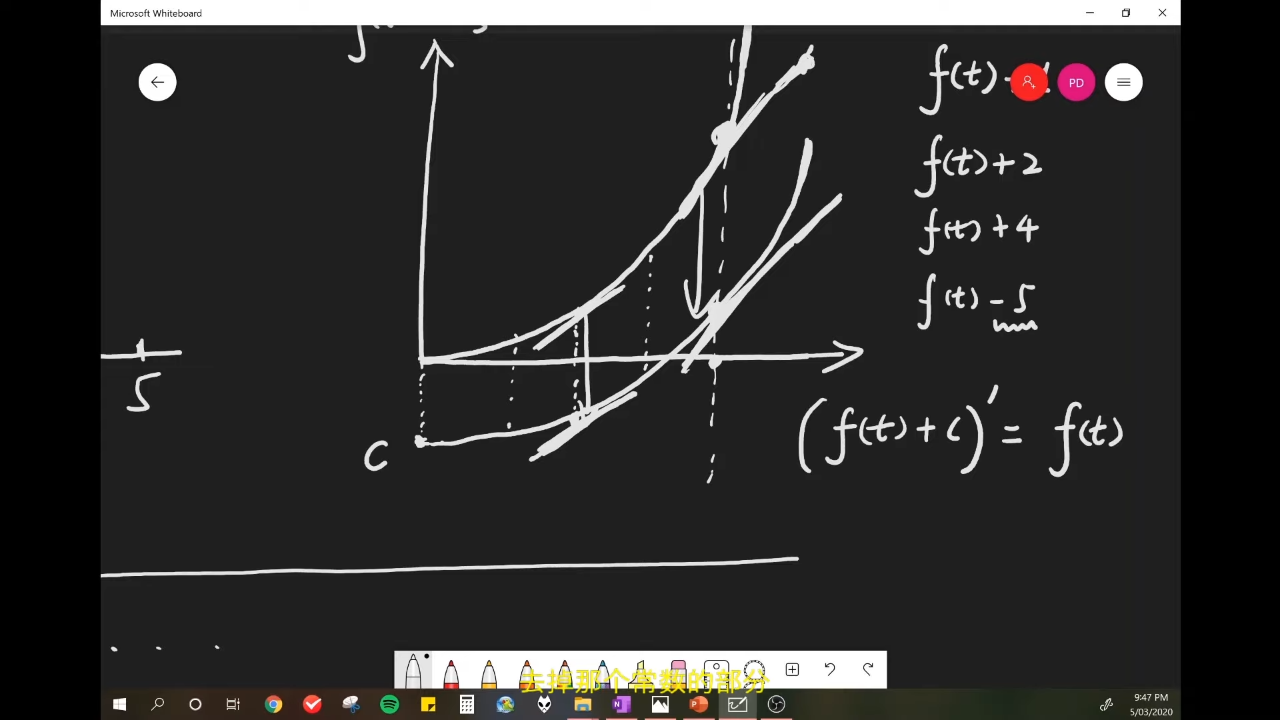 Microsoft Whiteboard
PD
f(t) + 2
f(t) + 4
f(t) - 5
5
(f(t) + C)' = f(t)
C
去掉那个常数的部分
9:47 PM
5/03/2020